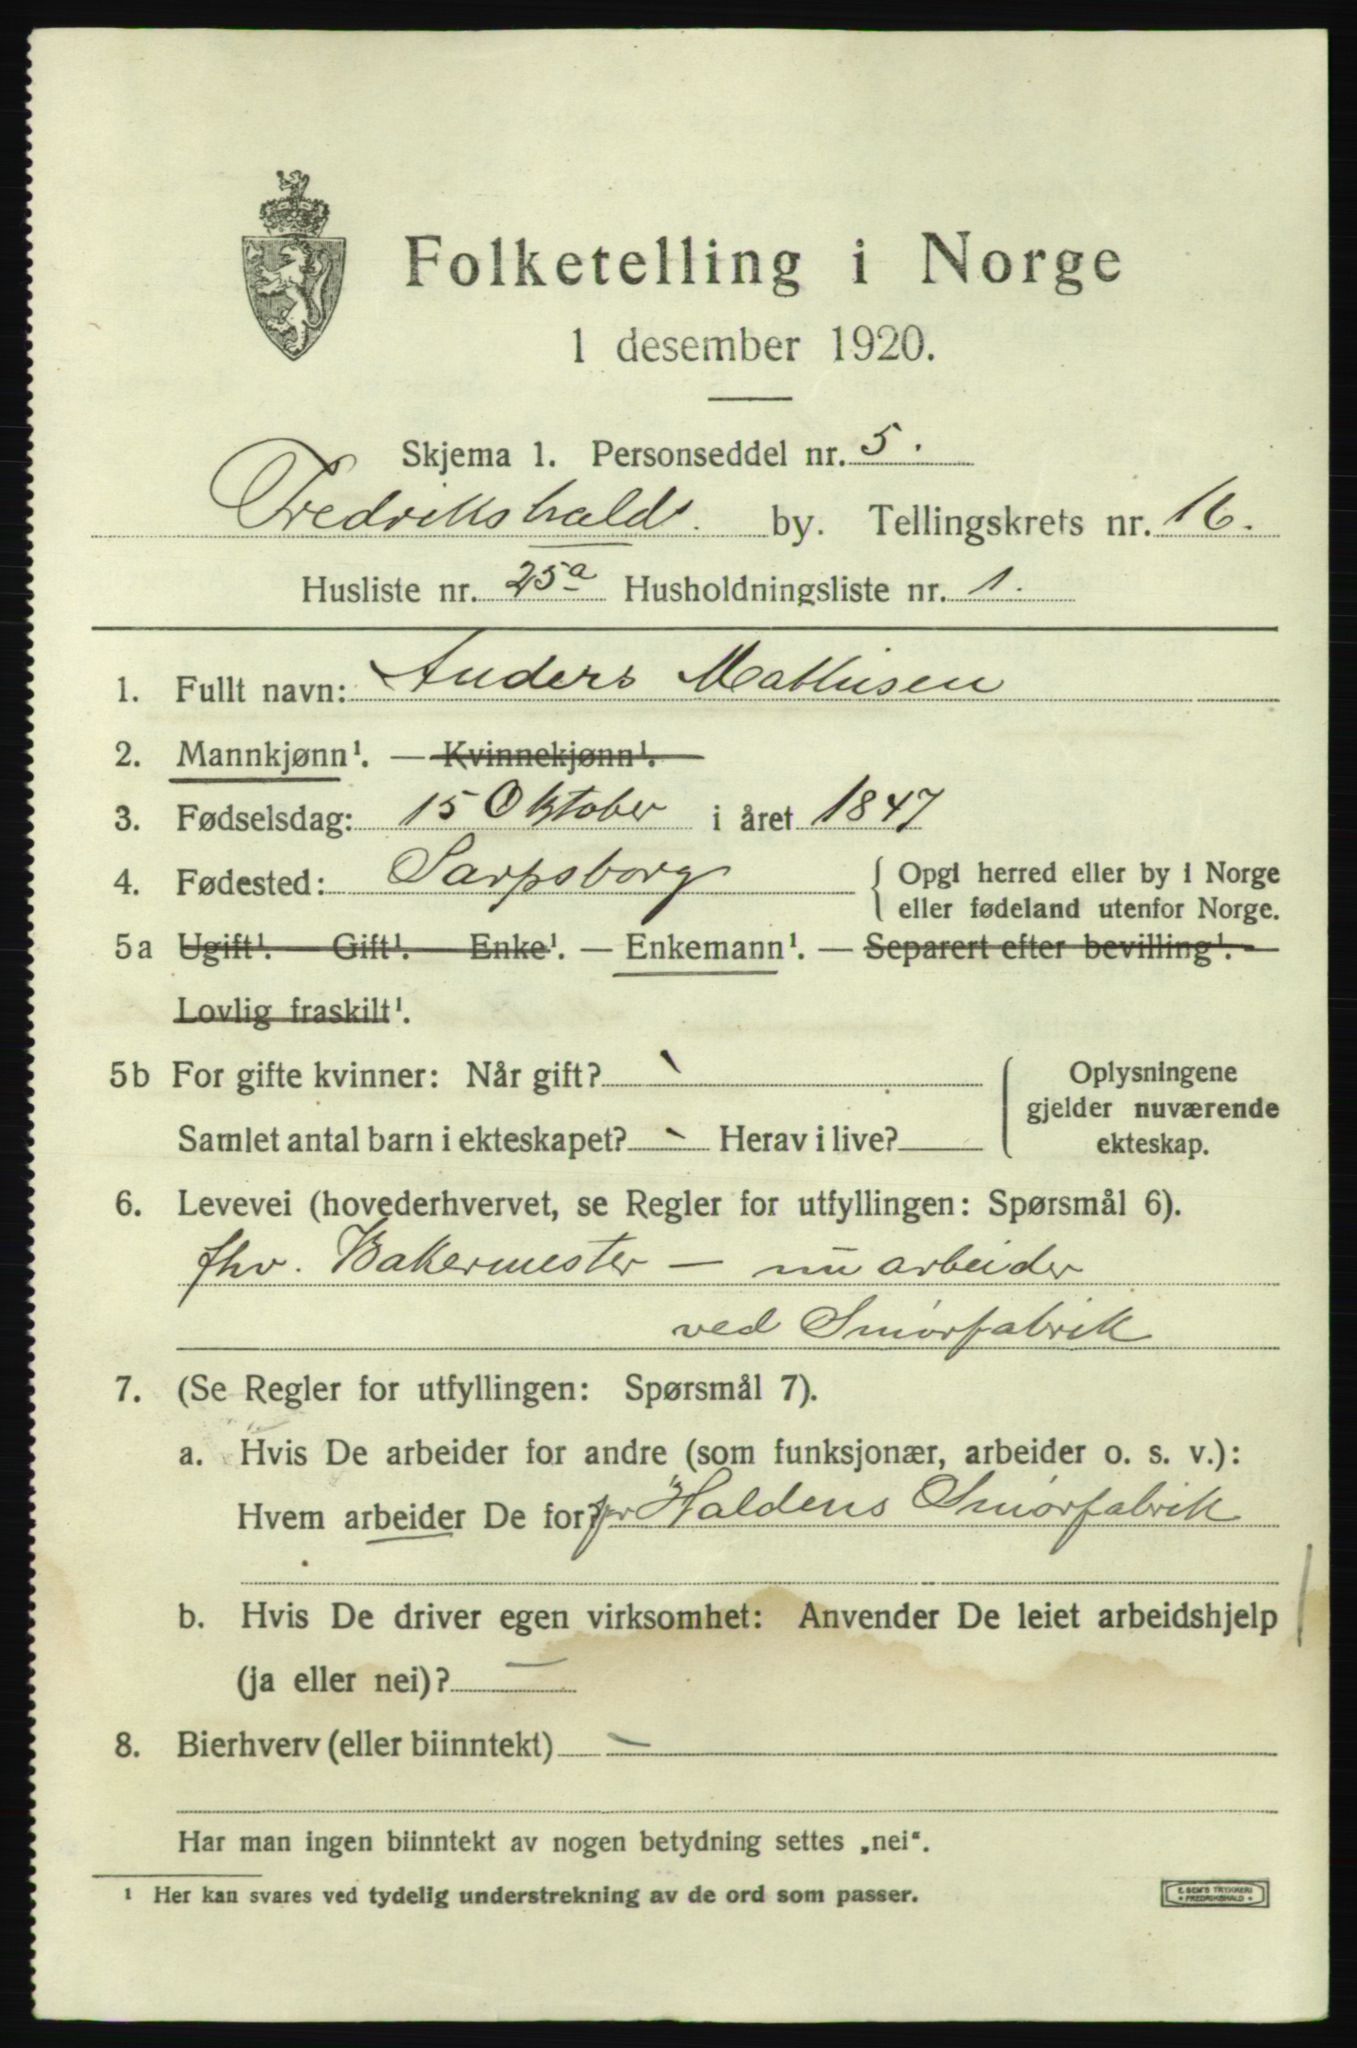 Folketelling i Norge
1 desember 1920.
Skjema 1. Personseddel nr. 5.
Fredrikshald. by. Tellingskrets nr. 16.
Husliste nr. 25a Husholdningsliste nr. 1.
1. Fullt navn: Anders Mathisen
2. Mannkjønn¹. — Kvinnekjønn¹.
3. Fødselsdag: 15 Oktober i året 1847
4. Fødested: Sarpsborg { Opgi herred eller by i Norge
eller fødeland utenfor Norge.
5a Ugift¹. — Gift¹. — Enke¹. — Enkemann¹. — Separert efter bevilling¹. —
Lovlig fraskilt¹.
5b For gifte kvinner: Når gift?
Samlet antal barn i ekteskapet? Herav i live?
Oplysningene
gjelder nuværende
ekteskap.
6. Levevei (hovederhvervet, se Regler for utfyllingen: Spørsmål 6).
fhv. Bakermester — nu arbeider
ved Smørfabrik
7. (Se Regler for utfyllingen: Spørsmål 7).
a. Hvis De arbeider for andre (som funksjonær, arbeider o. s. v.):
Hvem arbeider De for? for Haldens Smørfabrik
b. Hvis De driver egen virksomhet: Anvender De leiet arbeidshjelp
(ja eller nei)? —
8. Bierhverv (eller biinntekt) —
Har man ingen biinntekt av nogen betydning settes „nei“.
¹ Her kan svares ved tydelig understrekning av de ord som passer.
E. SEM'S TRYKKERI
• FREDRIKSHALD •